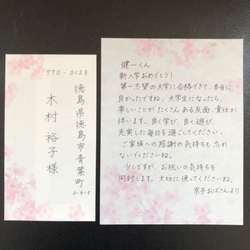 770-0123
徳島県徳島市青葉町
2-9-5
木村 裕子 様
健一くん
新入学おめでとう!
第一志望の大学に合格できて、本当に
良かったですね。大学生になったら、
楽しいことがたくさんある反面、責任が
伴います。良く学び、良く遊び、
充実した毎日を過ごしてください。
ご家族への感謝の気持ちも忘れ
ないでくださいね。
少しですが、お祝いの気持ちを
同封します。大切に使ってくださいね。
京子おばさんより